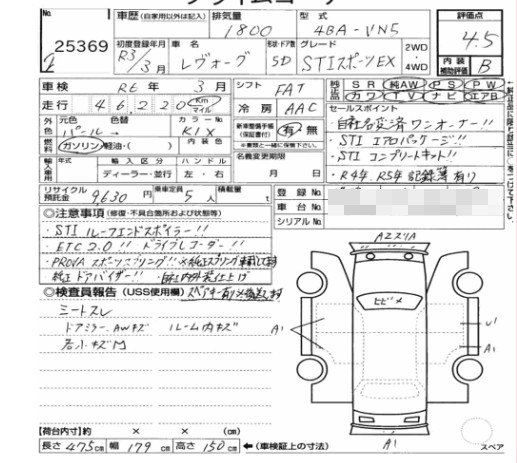 No.
25369
車歴 (自家用以外は記入)
排気量
1800
型式
4BA-VN5
評価点
4.5
初度登録年月
R3/3月
車名
レヴォーグ
形状・ドア数
5D
グレード
STIスポーツEX
2WD
4WD
内装
補助評価
B
車検
R6年 3月
シフト
FAT
純正品
SR 純AW PS PW
カワ TV ナビ エアB
走行
46,220
Km
マイル
冷房
AAC
セールスポイント
外色
元色
色替
パール→
カラーNo
K1X
内装色
新車整備手帳
(保証書付)
有・無
※書類と一緒に保管下さい。
・自社名変済 ワンオーナー!!
・STI エアロパッケージ!!
・STI コンプリートキット!!
・R4年、R5年記録簿有り
燃料
ガソリン・軽油・( )
名義変更期限
月 日
輸入車用
年式
輸入区分
ディーラー・並行
ハンドル
左・右
リサイクル
預託金
9,630円
乗車定員
5人
積載量
t
登録No.
車台No.
シリアルNo.
◎注意事項 (修復・不具合箇所および状態等)
・STI ルーフエンドスポイラー!!
・ETC2.0!! ドライブレコーダー!!
・PROVA スポーツスプリング!!
純正ドアバイザー!!
◎検査員報告 (USS使用欄)
ミートスレ
ドアミラー、AWキズ ルーム内キズ
若小キズ有
AZスリA
ヒビ×
A1
U1
A1
A1
【荷台内寸】約 × × (cm)
長さ 475cm 幅 179cm 高さ 150cm ←(車検証上の寸法)
スペア